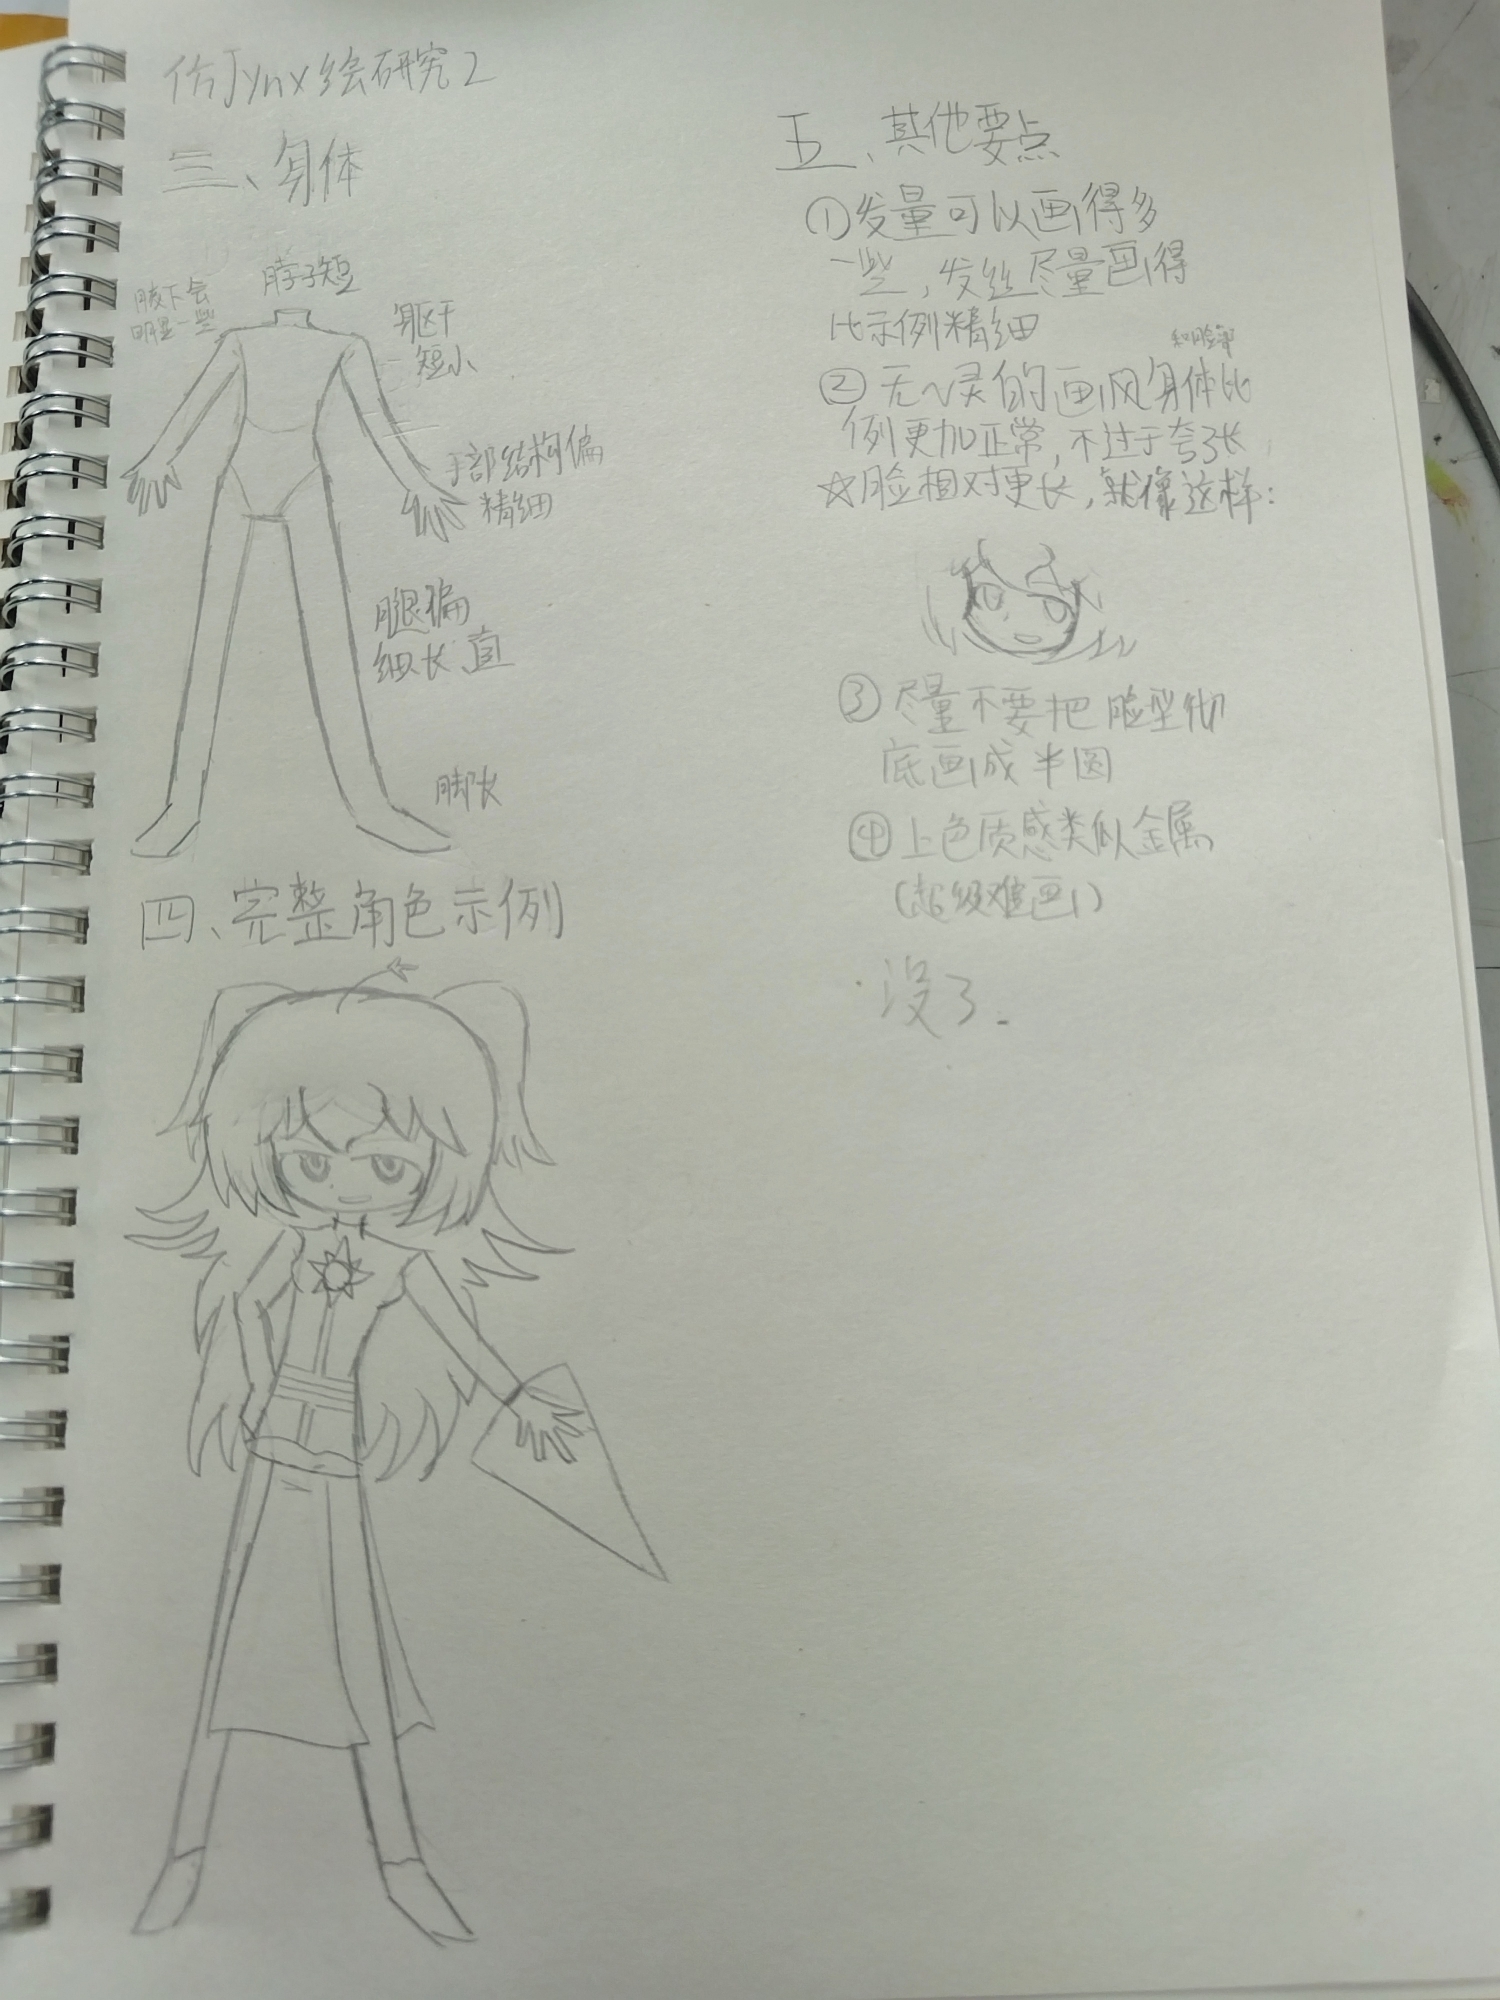 仿Jynx绘研究2
三、身体
脖子短
腋下会
明显一些
躯干
短小
手部结构偏
精细
腿偏
细长、直
脚长
四、完整角色示例
五、其他要点
①发量可以画得多
一些，发丝尽量画得
比示例精细
和脸部
②无心灵的画风身体比
例更加正常，不过于夸张
☆脸相对更长，就像这样：
③尽量不要把脸型彻
底画成半圆
④上色质感类似金属
（超级难画）
没了.